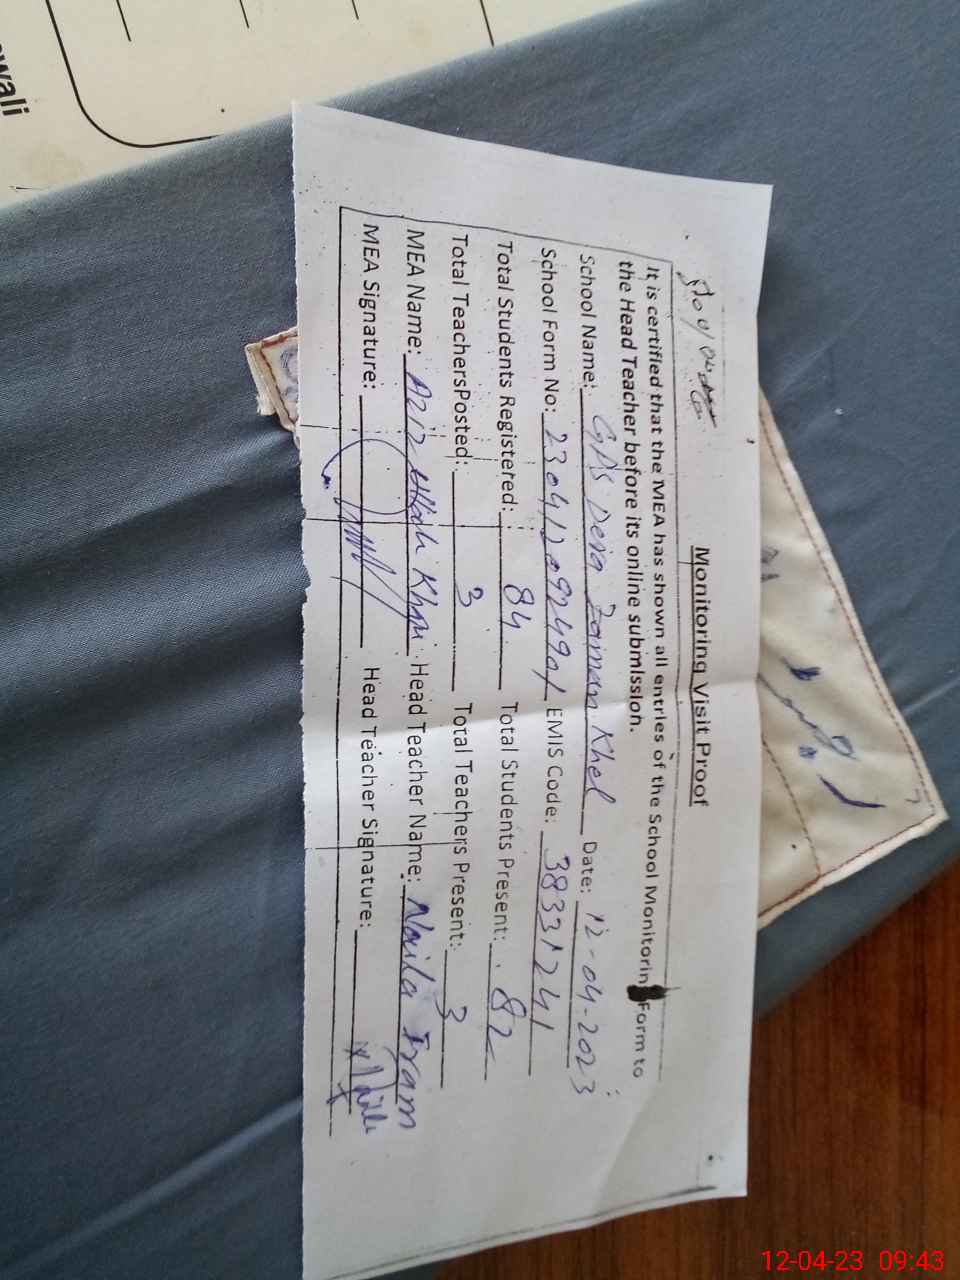 Monitoring Visit Proof
It is certified that the MEA has shown all entries of the School Monitorin Form to
the Head Teacher before its online submission.
School Name: GPS Dera Zaman Khel Date: 12-04-2023
School Form No: EMIS Code: 38331241
Total Students Registered: 84 Total Students Present: 82
Total TeachersPosted: 3 Total Teachers Present: 3
MEA Name: Aziz Ullah Khan Head Teacher Name: Naila Iram
MEA Signature: Head Teacher Signature:
wali
12-04-23 09:43